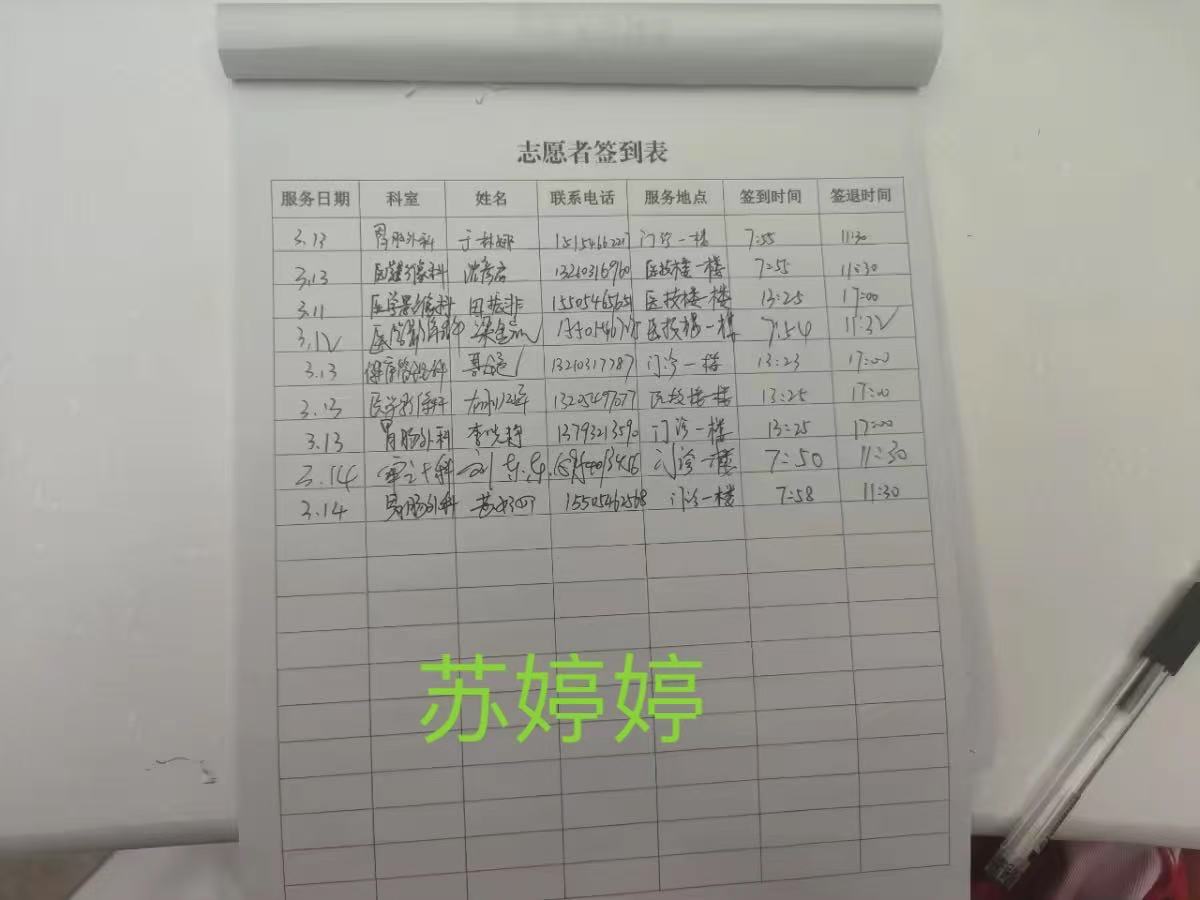 志愿者签到表
服务日期 科室 姓名 联系电话 服务地点 签到时间 签退时间
3.13 胃肠外科 于林娜 门诊一楼 7:55 11:30
3.13 医学影像科 13210316960 医技楼一楼 7:55 11:30
3.11 医学影像科 田振非 医技楼一楼 13:25 17:00
3.12 医学影像科 医技楼一楼 7:54 11:32
3.13 13210317787 门诊一楼 13:23 17:00
3.13 医学影像科 13205497077 医技楼一楼 13:25 17:00
3.13 胃肠外科 13793213590 门诊一楼 13:25 17:00
3.14 门诊一楼 7:50 11:30
3.14 胃肠外科 15505462568 门诊一楼 7:58 11:30
苏婷婷